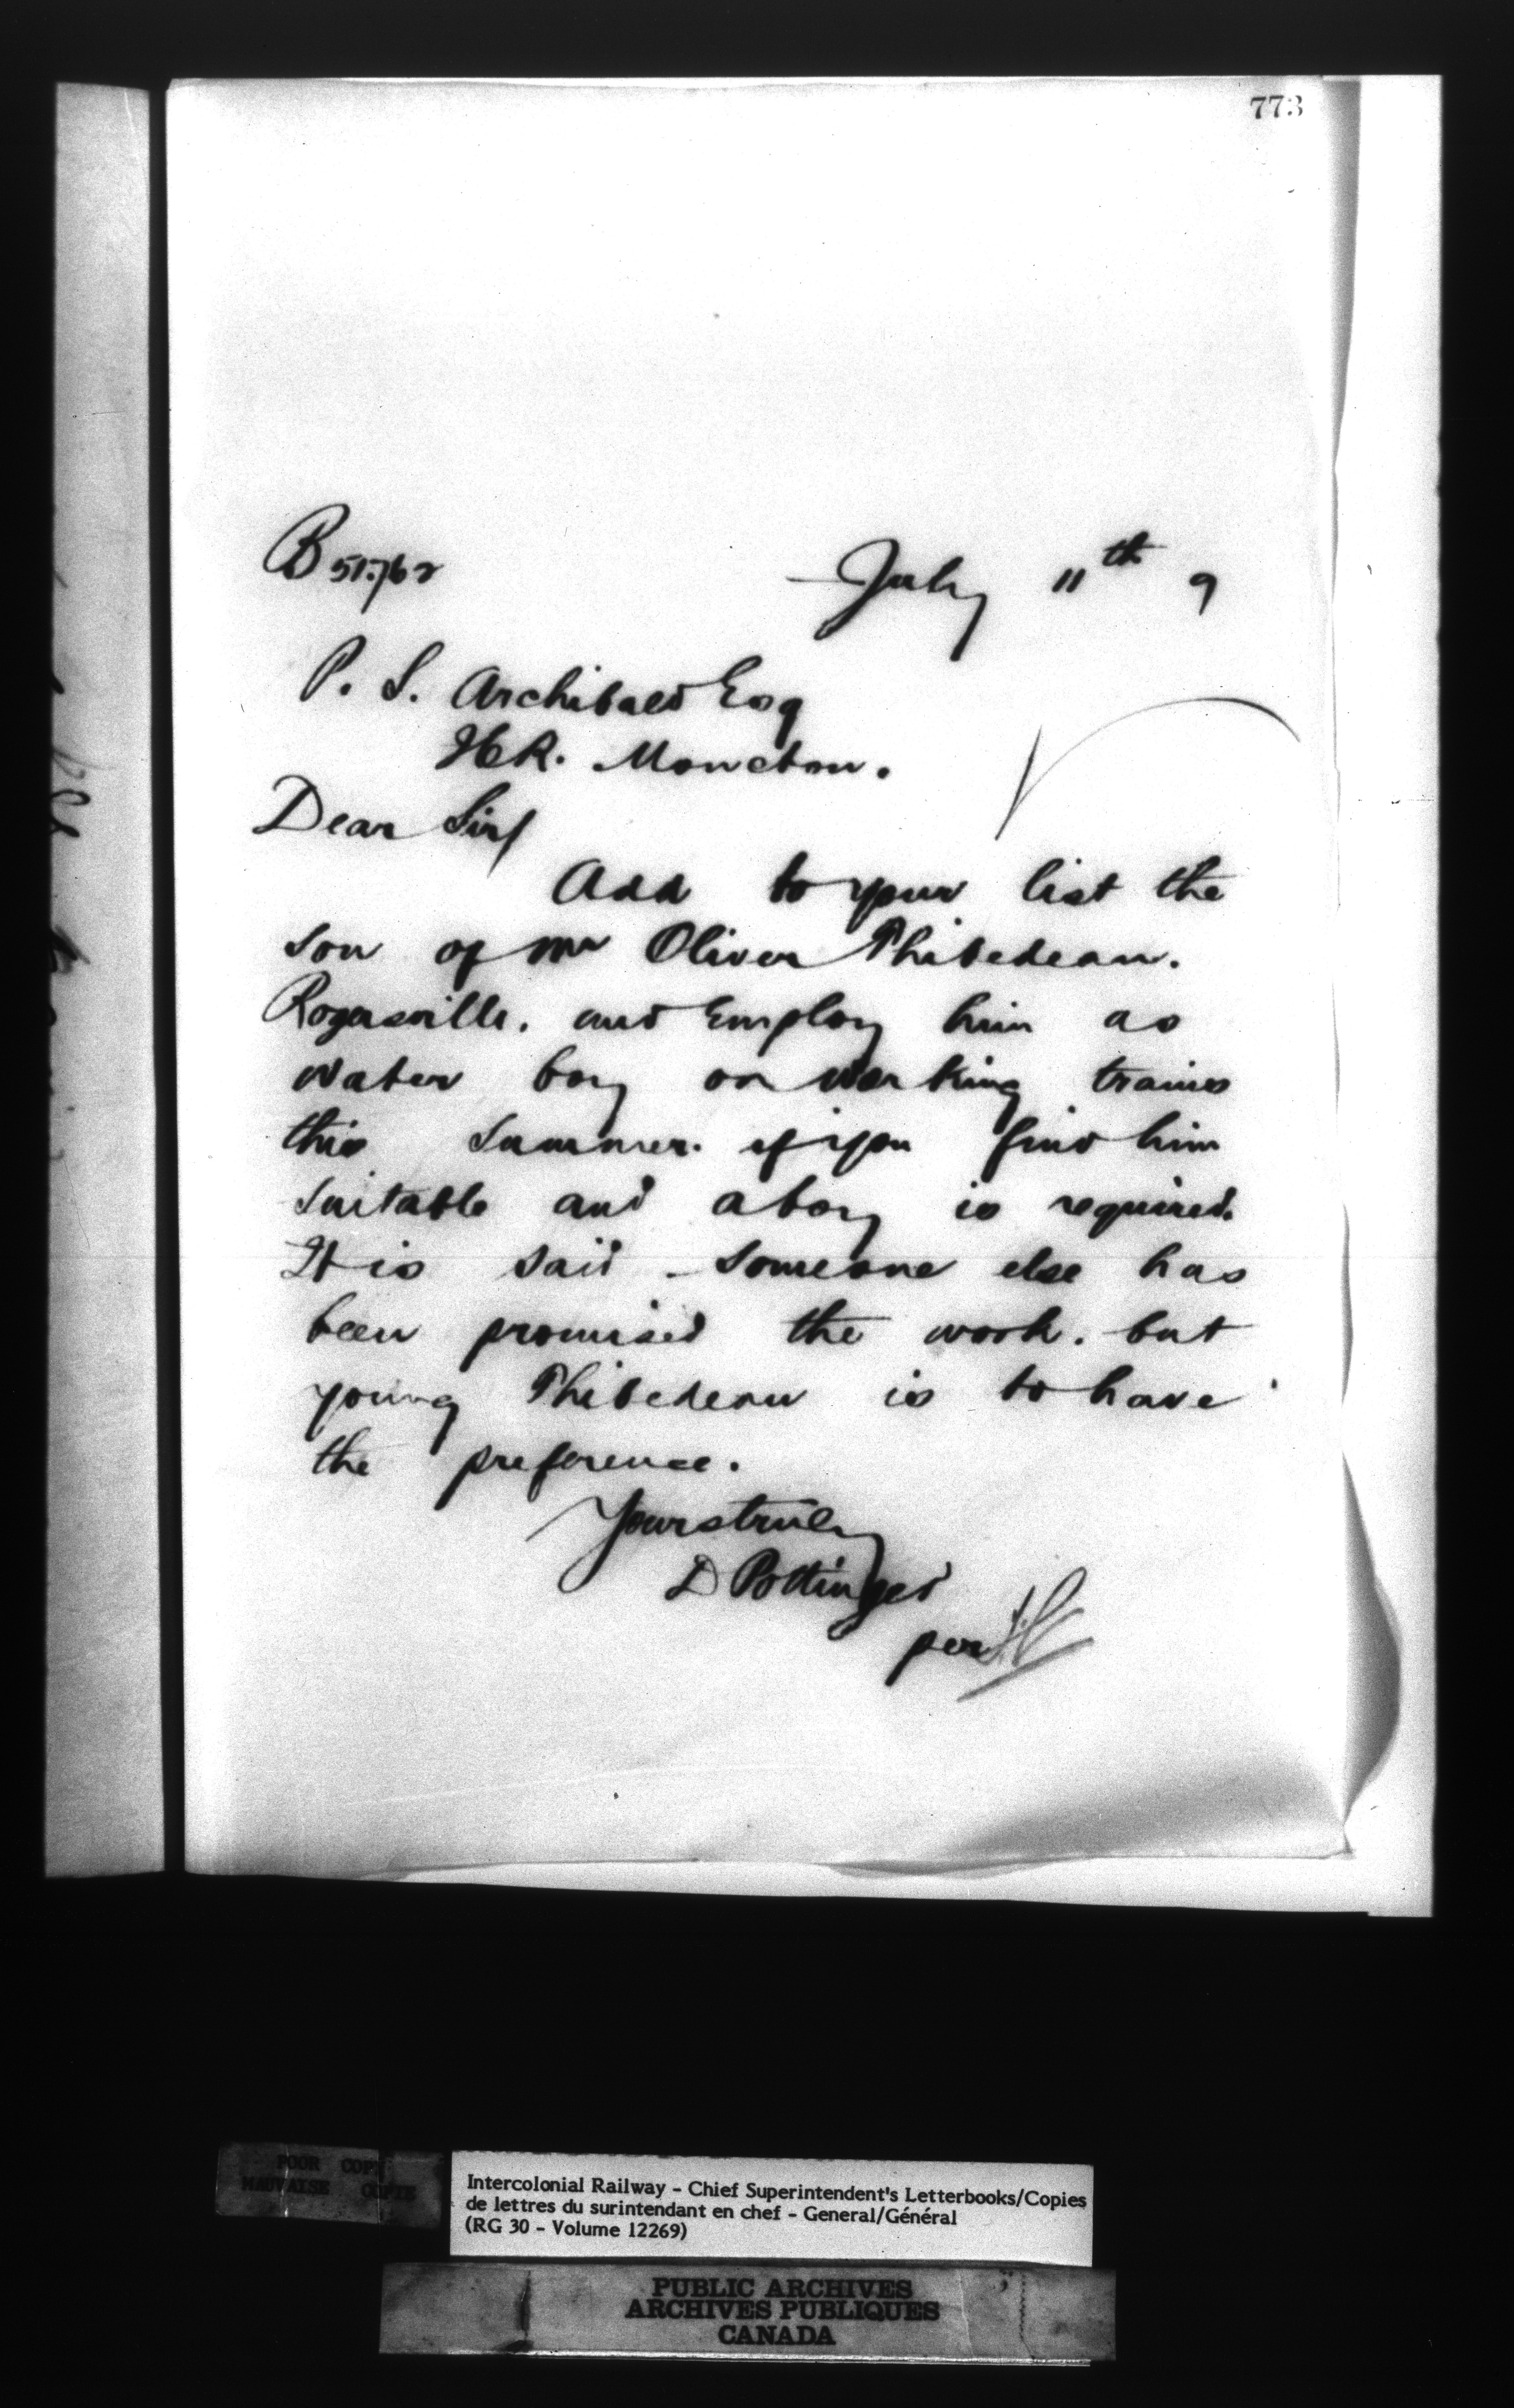 773
B 51762
July 11th 9
P. S. Archibald Esq
Moncton.
Dear Sir/
Add to your list the
son of Mr Oliver Thibedeau.
Rogersville. and Employ him as
water boy on working trains
this summer. if you find him
suitable and a boy is required.
It is said someone else has
been promised the work. but
young Thibedeau is to have
the preference.
Yours truly
D Pottinger
per
POOR COPY
MAUVAISE COPIE
Intercolonial Railway - Chief Superintendent's Letterbooks/Copies
de lettres du surintendant en chef - General/Général
(RG 30 - Volume 12269)
PUBLIC ARCHIVES
ARCHIVES PUBLIQUES
CANADA